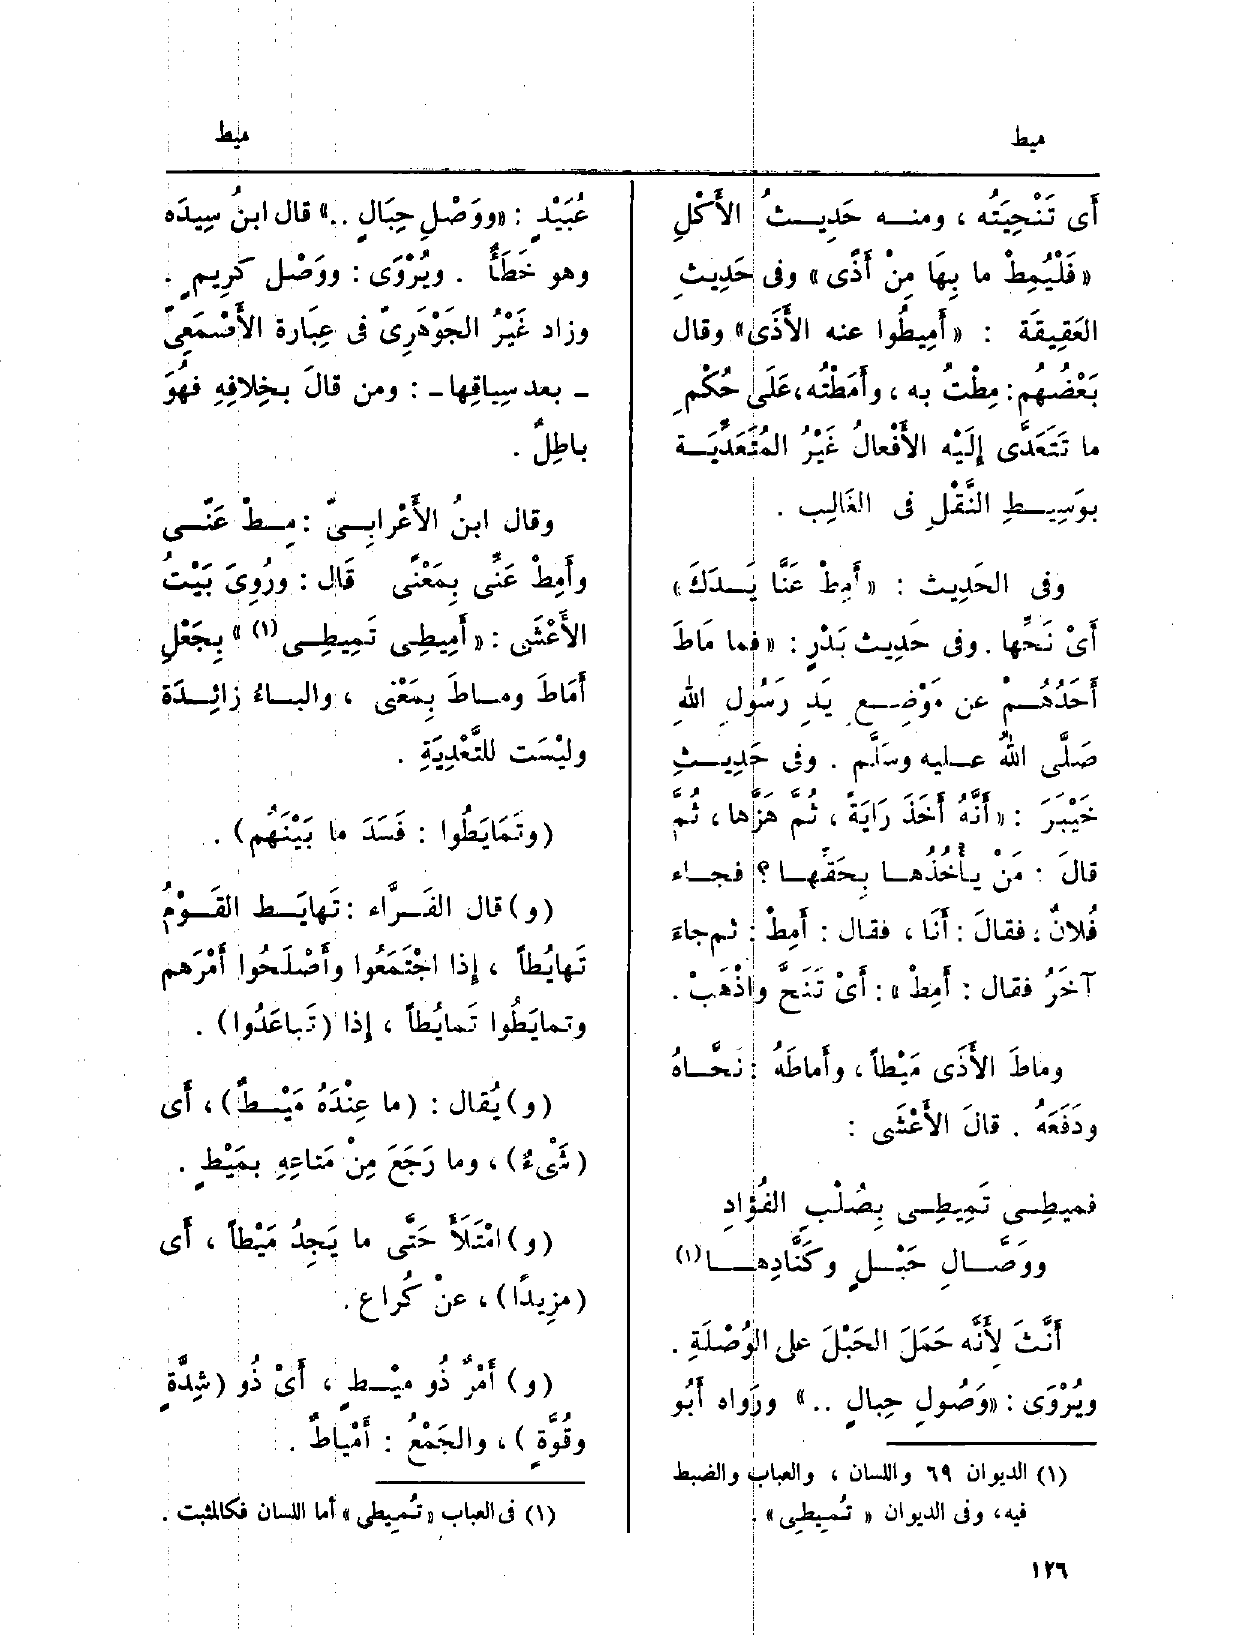 ميط
ميط
أى تَنْحِيَتُه ، ومنـه حَدِيـثُ الأَكْلِ
« فَلْيُمِطْ ما بِهَا مِنْ أَذًى » وفى حَدِيثِ
العَقِيقَة : « أَمِيطُوا عنه الأَذَى » وقال
بَعْضُهم: مِطْتُ به ، وأَمَطْتُه، عَلَى حُكْمِ
ما تَتَعَدَّى إِلَيْه الأَفْعالُ غَيْرُ المُتَعَدِّيَـة
بوَسِيـطِ النَّقْلِ فى الغَالِب .
وفى الحَدِيث : « أَمِطْ عَنَّا يَـدَكَ »
أَىْ نَحِّها . وفى حَدِيث بَدْرٍ : « فما مَاطَ
أَحَدُهُـمْ عن مَوْضِـعِ يَدِ رَسُولِ اللهِ
صَلَّى اللهُ عـليه وسَلَّم . وفى حَدِيـثِ
خَيْبَرَ : « أَنَّهُ أَخَذَ رَايَةً ، ثُمَّ هَزَّها ، ثُمَّ
قالَ : مَنْ يـأْخُذُهـا بِحَقِّهـا ؟ فجـاء
فُلانٌ : فقالَ : أَنَا ، فقال : أَمِطْ : ثم جاءَ
آخَرُ فقال : أَمِطْ » : أَىْ تَنَحَّ واذْهَبْ .
وماطَ الأَذَى مَيْطاً ، وأَماطَهُ : نَحَّـاهُ
ودَفَعَهُ . قالَ الأَعْشَى :
فمِيطِـى تَمِيطِـى بِصُلْبِ الفُؤَادِ
ووَصَّـالِ حَبْـلٍ وكَنَّادِهـا(١)
أَنَّثَ لِأَنَّه حَمَلَ الحَبْلَ على الوُصْلَةِ .
ويُرْوَى : «وَصُولِ حِبالٍ .. » ورَواه أَبُو
(١) الديوان ٦٩ واللسان ، والعباب والضبط
فيه، وفى الديوان « تُمِيطِى » .
عُبَيْدٍ : «ووَصْلِ حِبَالٍ ..» قال ابنُ سِيدَه
وهو خَطَأٌ . ويُرْوَى : ووَصْلِ كَرِيمٍ .
وزاد غَيْرُ الجَوْهَرِىّ فى عِبَارة الأَصْمَعِىّ
ـ بعد سِياقِها ـ : ومن قالَ بخِلافِهِ فهُوَ
باطِلٌ .
وقال ابنُ الأَعْرابِـىّ : مِـطْ عَنِّـى
وأَمِطْ عَنِّى بِمَعْنًى قَال : ورُوِىَ بَيْتُ
الأَعْشَى : « أَمِيطِى تَمِيطِـى (١) » بِجَعْلِ
أَمَاطَ ومـاطَ بِمَعْنًى ، والبـاءُ زائِـدَة
وليْسَت للتَّعْدِيَةِ .
(وتَمَايَطُوا : فَسَدَ ما بَيْنَهُم) .
(و) قال الفَـرَّاء : تَهايَـط القَـوْمُ
تَهايُطاً ، إِذا اجْتَمَعُوا وأَصْلَحُوا أَمْرَهم
وتمايَطُوا تَمايُطاً ، إِذا (تَباعَدُوا) .
(و) يُقال : (ما عِنْدَهُ مَيْـطٌ) ، أَى
(شَىْءٌ) ، وما رَجَعَ مِنْ مَتاعِهِ بمَيْطٍ .
(و) امْتَلَأَ حَتَّى ما يَجِدُ مَيْطاً ، أَى
(مزِيدًا) ، عنْ كُراع .
(و) أَمْرٌ ذُو ميْـطٍ ، أَىْ ذُو (شِدَّةٍ
وقُوَّةٍ ) ، والجَمْعُ : أَمْياطٌ .
(١) فى العباب « تُميطى » أما اللسان فكالمثبت .
١٢٦